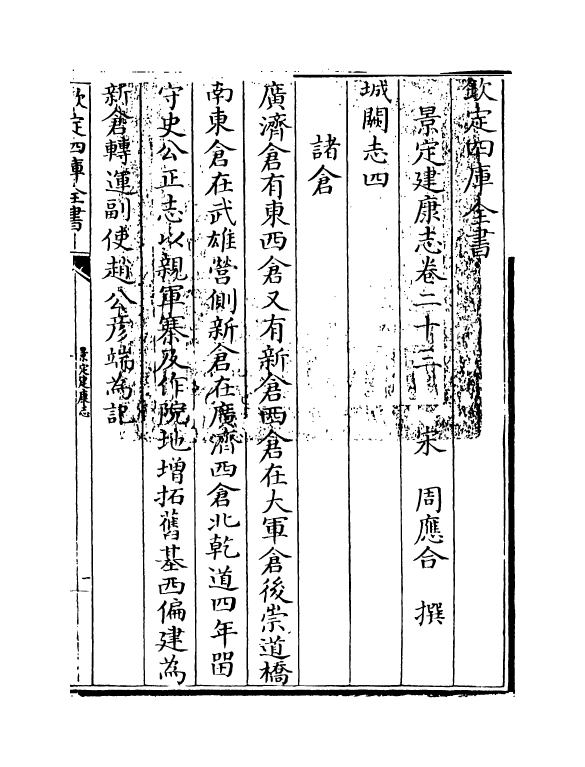 欽定四庫全書
景定建康志卷二十三　宋　周應合　撰
城闕志四
諸倉
廣濟倉有東西倉又有新倉西倉在大軍倉後崇道橋
南東倉在武雄營側新倉在廣濟西倉北乾道四年留
守史公正志以親軍寨及作院地增拓舊基西偏建為
新倉轉運副使趙公彥端為記
欽定四庫全書
景定建康志
一